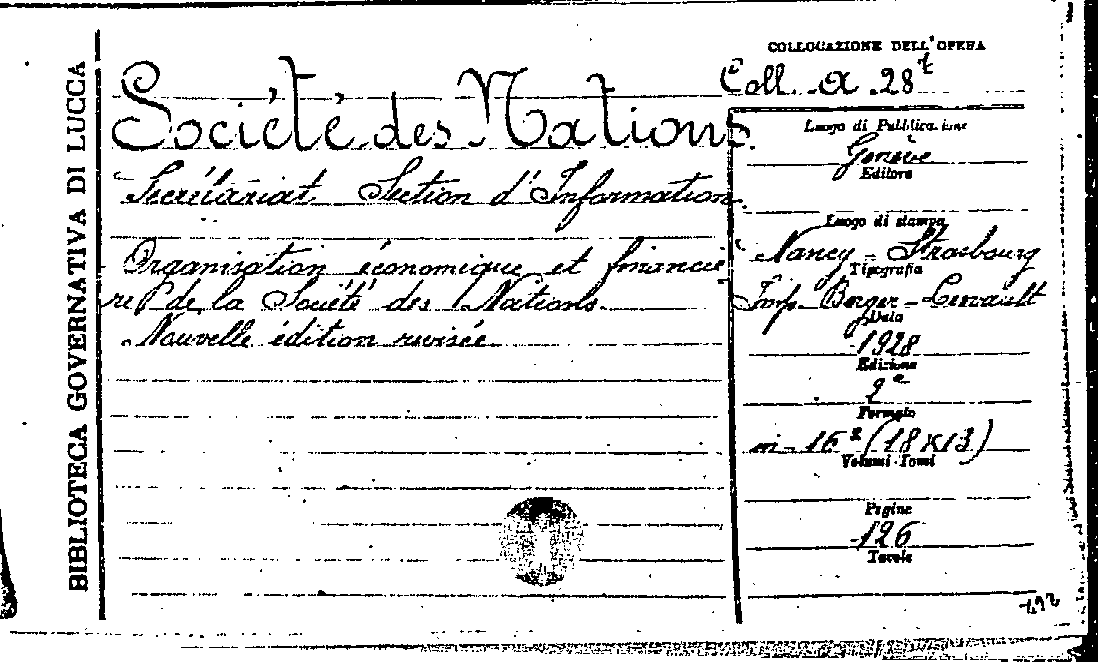 BIBLIOTECA GOVERNATIVA DI LUCCA
COLLOCAZIONE DELL'OPERA
Coll. a. 28
Société des Nations
Secrétariat Section d'Information
Organisation économique et financiè
re de la Société des Nations.
Nouvelle édition revisée
Luogo di Pubblicazione
Genève
Editore
Luogo di stampa
Nancy - Strasbourg
Tipografia
Imp. Berger - Levrault
Data
1928
Edizione
2ª
Formato
in - 16º (18 x 13)
Volumi-Tomi
Pagine
126
Tavole